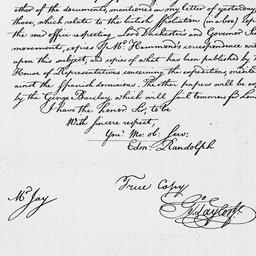 other of the documents, mentioned in my letter of yesterday,
those, which relate to the british spoliation (in a box)
the war office respecting Lord Dorchester's and Governor
movements, copies of Mr. Hammond's correspondence
upon this subject, and copies of what has been published by
House of Representatives concerning the expedition,
ainst the Spanish dominions. The other papers will be
by the George Barclay which will sail tomorrow for
I have the honor Sir, to be
With sincere respect,
Your Mo: ob: Serv:
Edm: Randolph
Mr Jay
True Copy
Geo Taylor Jr